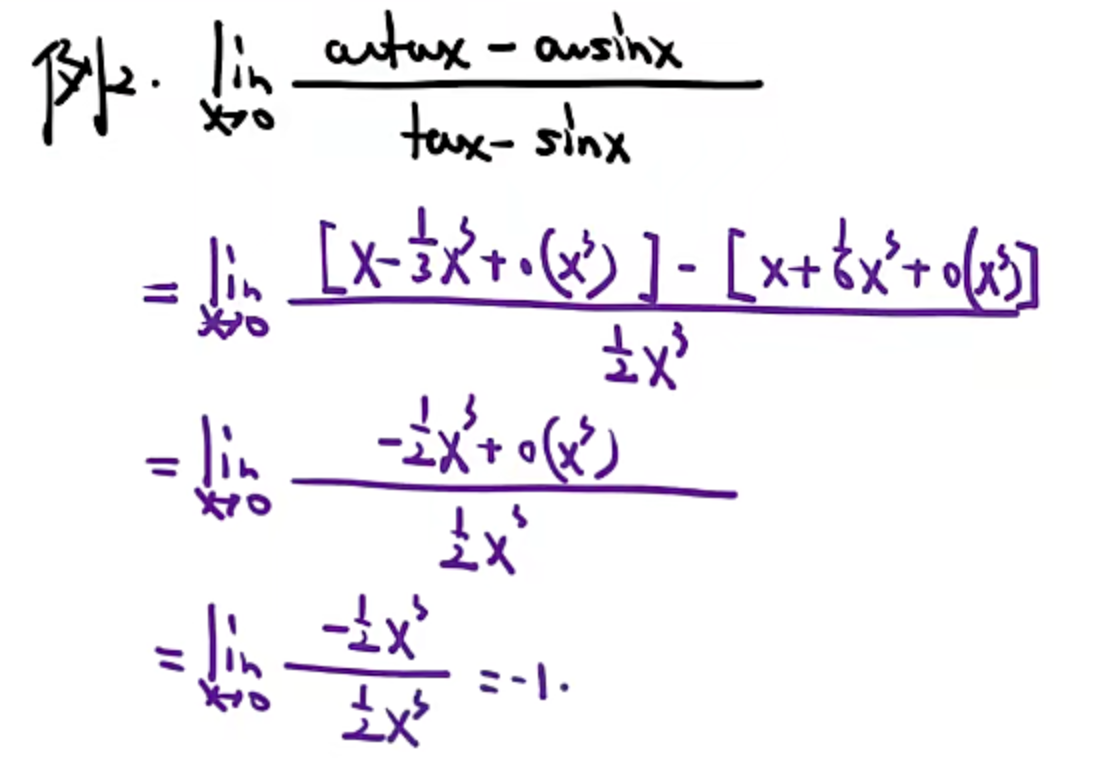 例2. lim_{x→0} (arctanx - arcsinx)/(tanx - sinx)
= lim_{x→0} ([x - 1/3 x³ + o(x³)] - [x + 1/6 x³ + o(x³)])/(1/2 x³)
= lim_{x→0} (-1/2 x³ + o(x³))/(1/2 x³)
= lim_{x→0} (-1/2 x³)/(1/2 x³) = -1.